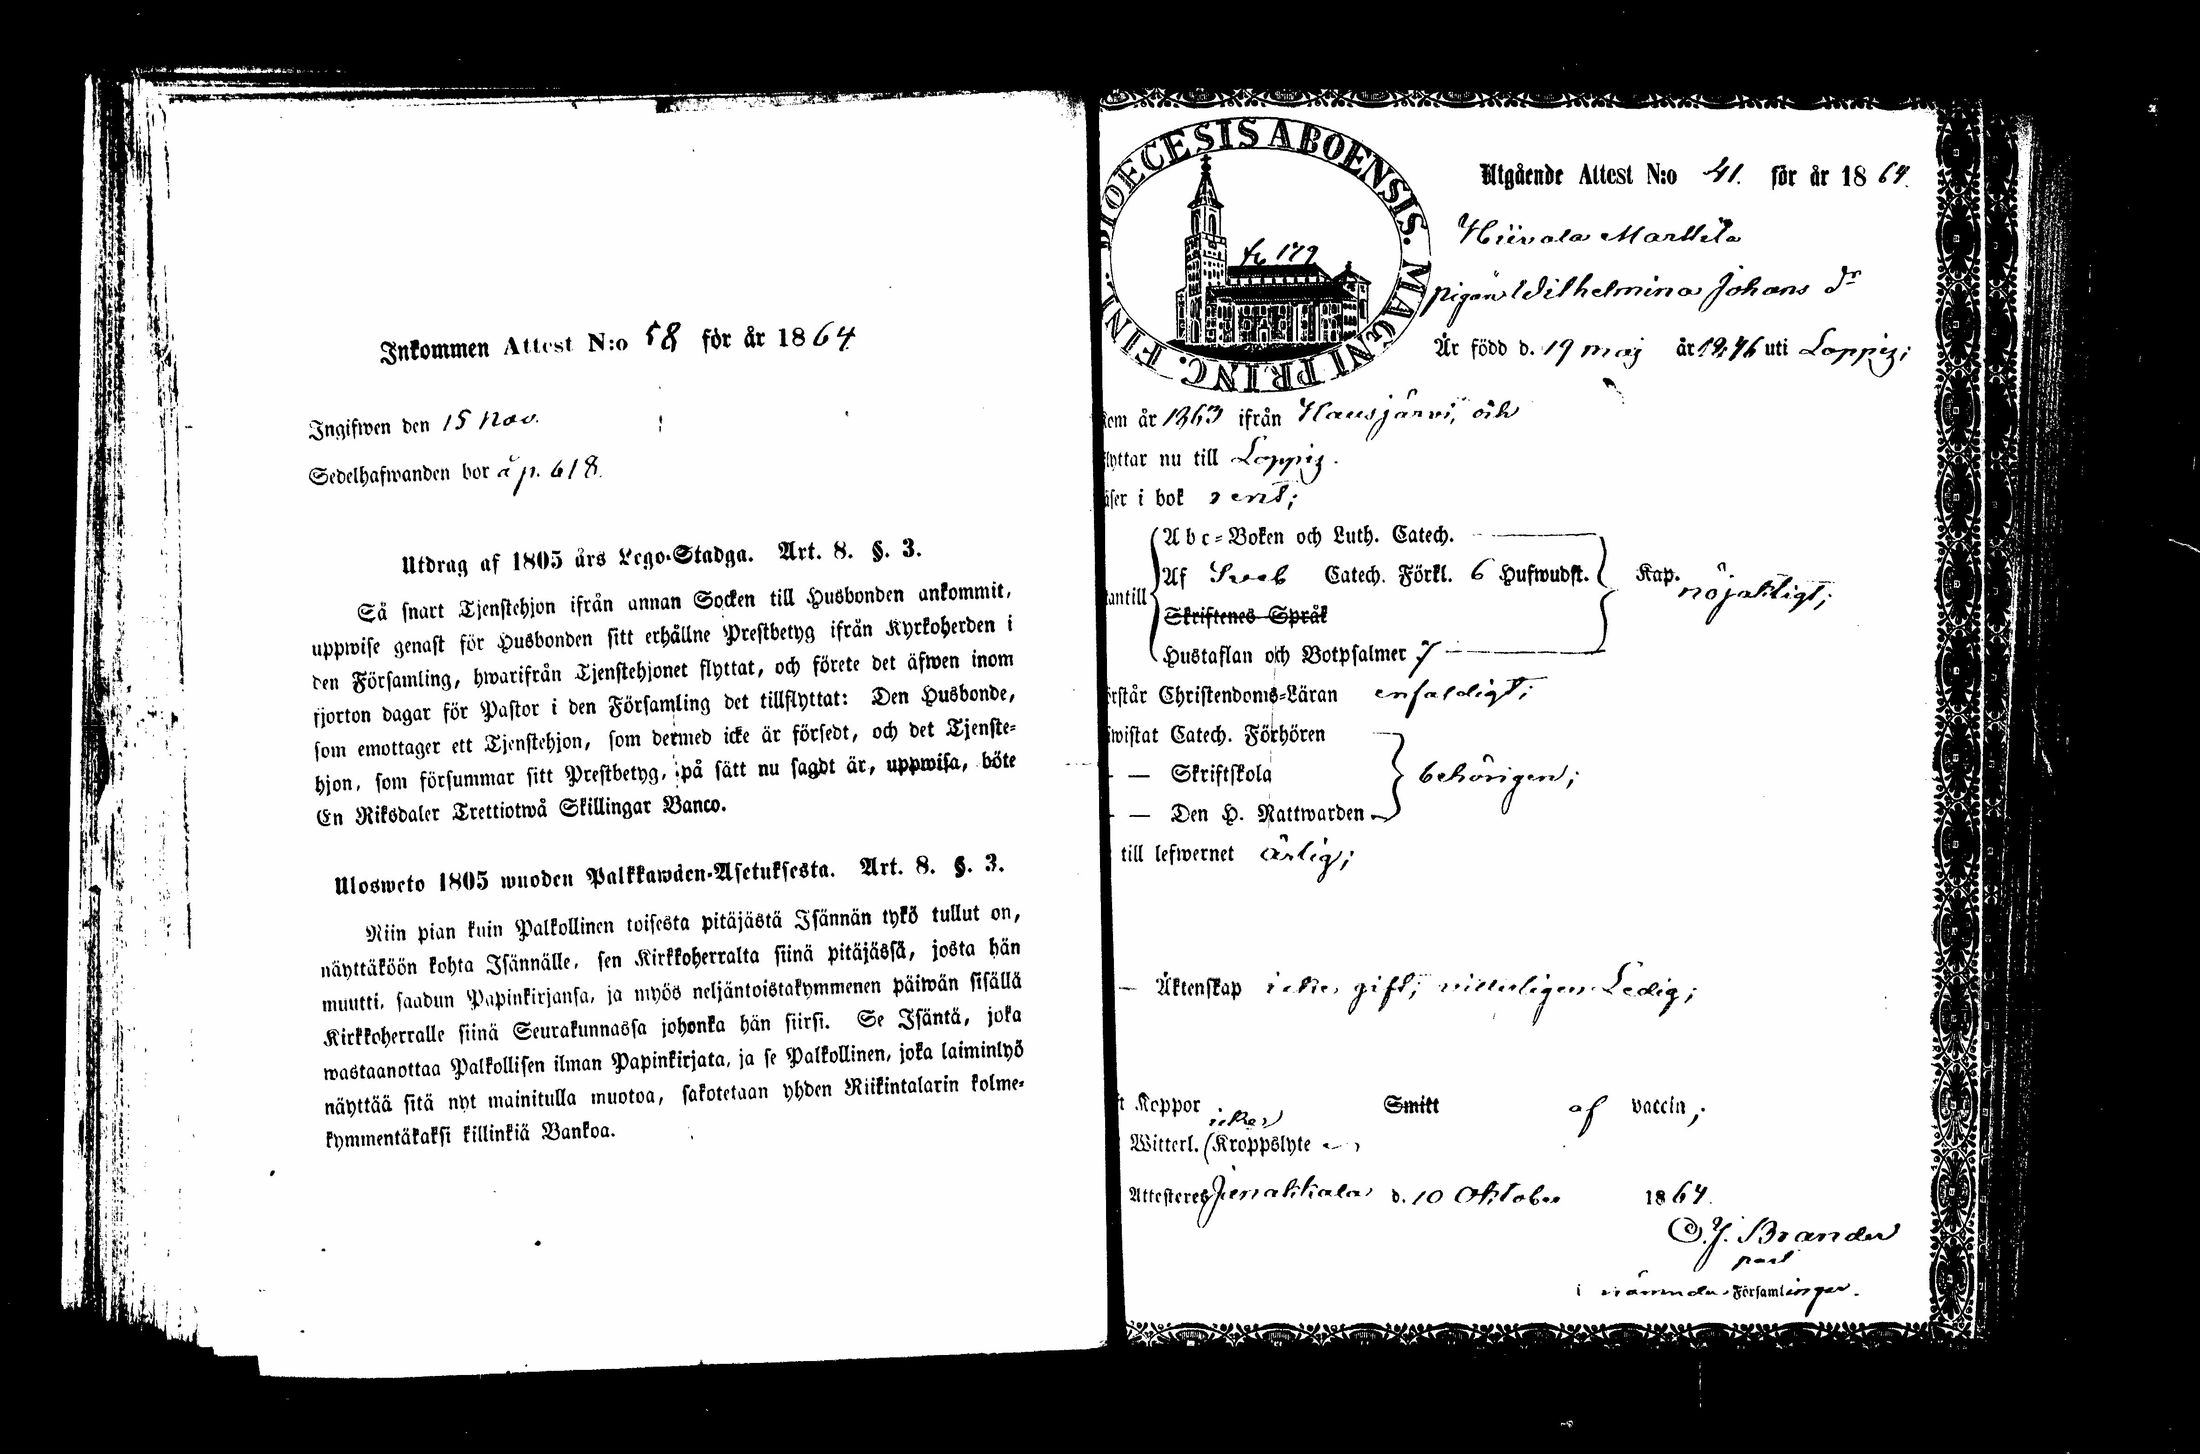 Inkommen Attest N:o 58 för år 1864
Ingifwen den 15 Nov.
Sedelhafwanden bor å p. 618.
Utdrag af 1805 års Lego-Stadga. Art. 8. §. 3.
Så snart Tjenstehjon ifrån annan Socken till Husbonden ankommit,
uppwise genast för Husbonden sitt erhållne Prestbetyg ifrån Kyrkoherden i
den Församling, hwarifrån Tjenstehjonet flyttat, och förete det äfwen inom
fjorton dagar för Pastor i den Församling det tillflyttat: Den Husbonde,
som emottager ett Tjenstehjon, som dermed icke är försedt, och det Tjenste-
hjon, som försummar sitt Prestbetyg, på sätt nu sagdt är, uppwisa, böte
En Riksdaler Trettiotwå Skillingar Banco.
Ulosweto 1805 wuoden Palkkawäen-Asetuksesta. Art. 8. §. 3.
Niin pian kuin Palkollinen toisesta pitäjästä Isännän tykö tullut on,
näyttäköön kohta Isännälle, sen Kirkkoherralta siinä pitäjässä, josta hän
muutti, saadun Papinkirjansa, ja myös neljäntoistakymmenen päiwän sisällä
Kirkkoherralle siinä Seurakunnassa johonka hän siirsi. Se Isäntä, joka
wastaanottaa Palkollisen ilman Papinkirjata, ja se Palkollinen, joka laiminlyö
näyttää sitä nyt mainitulla muotoa, sakotetaan yhden Riikintalarin kolme-
kymmentäkaksi killinkiä Bankoa.
DIOECESIS ABOENSIS. MAGNI PRINC. FINL.
179
Utgående Attest N:o 41. för år 1864.
Hiivola Marttila
pigan Wilhelmina Johans dr
Är född d. 19 maj år 1846 uti Loppis;
kom år 1863 ifrån Hausjärvi, och
flyttar nu till Loppis.
läser i bok rent;
Abc-Boken och Luth. Catech.
Af Sveb Catech. Förkl. 6 Hufwudst. Kap. nöjaktigt;
utantill
Skriftenes Språk
Hustaflan och Botpsalmer 7
förstår Christendoms-Läran enfaldigt;
bewistat Catech. Förhören
— — Skriftskola behörigen;
— — Den H. Nattwarden
till lefwernet ärlig;
— Äktenskap icke gift, vitterligen Ledig;
haft Koppor Smitt af vaccin;
icke
Witterl. (Kroppslyte
Attesteres Jenakkala d. 10 Oktober 1864.
O.J. Brander
past
i nämnda Församlingar.